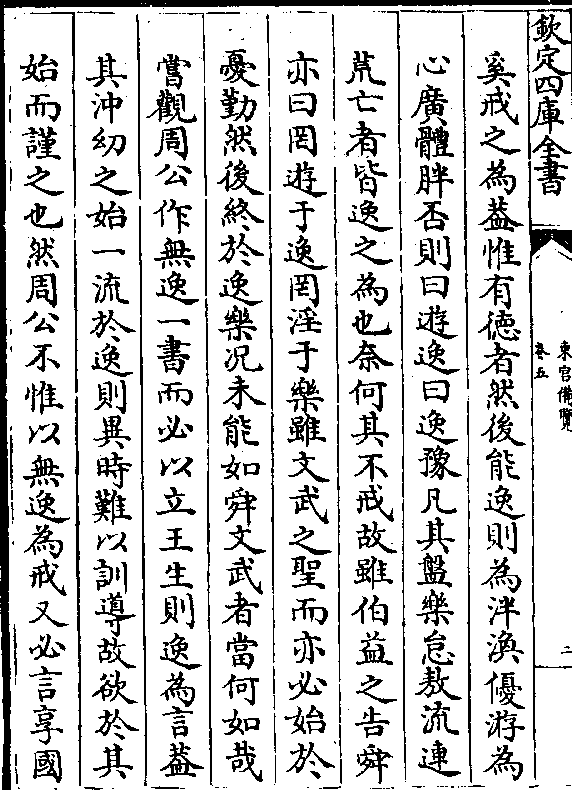 欽定四庫全書
東宮備覽
卷五
二
奚戒之為葢惟有德者然後能逸則為泮渙優游為
心廣體胖否則曰遊逸曰逸豫凡其盤樂怠敖流連
荒亡者皆逸之為也奈何其不戒故雖伯益之告舜
亦曰罔遊于逸罔淫于樂雖文武之聖而亦必始於
憂勤然後終於逸樂况未能如舜文武者當何如哉
嘗觀周公作無逸一書而必以立王生則逸為言葢
其沖幼之始一流於逸則異時難以訓導故欲於其
始而謹之也然周公不惟以無逸為戒又必言享國